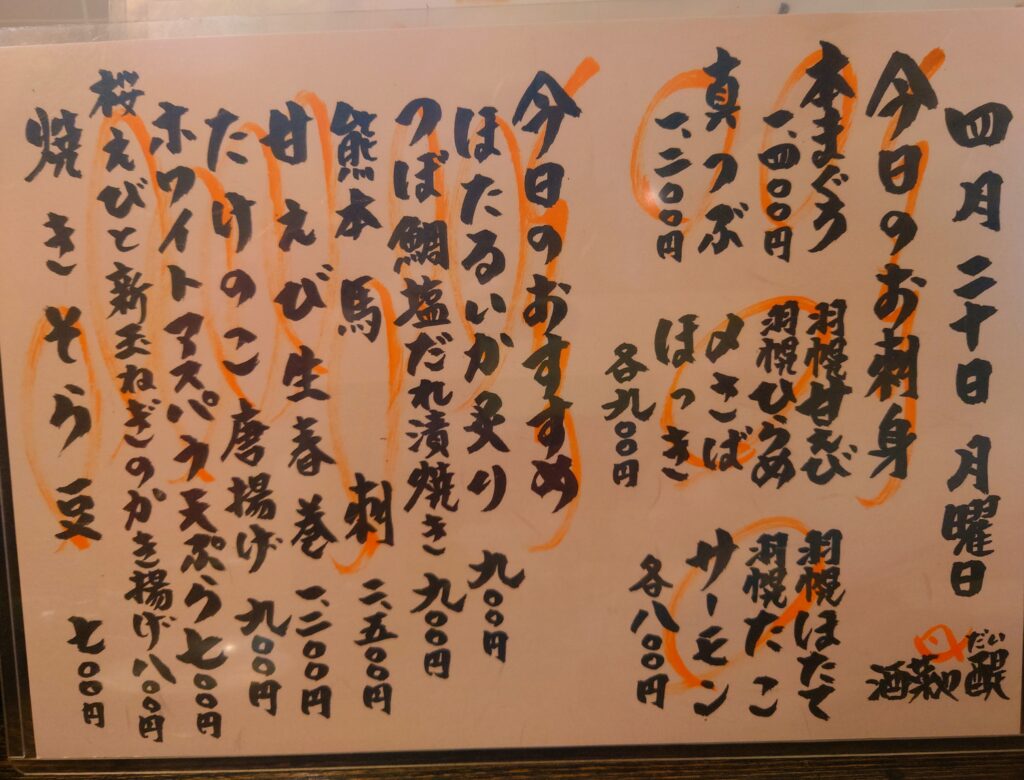 四月二十日 月曜日
だい
醍
酒菜
今日のお刺身
本まぐろ
一、四〇〇円
真つぶ
一、二〇〇円
羽幌甘えび
羽幌ひらめ
〆さば
ほっき
各九〇〇円
羽幌ほたて
羽幌たこ
サーモン
各八〇〇円
今日のおすすめ
ほたるいか炙り 九〇〇円
つぼ鯛塩だれ漬焼き 九〇〇円
熊本馬刺 二、五〇〇円
甘えび生春巻 一、二〇〇円
たけのこ唐揚げ 九〇〇円
ホワイトアスパラ天ぷら 七〇〇円
桜えびと新玉ねぎのかき揚げ 八〇〇円
焼きそら豆 七〇〇円